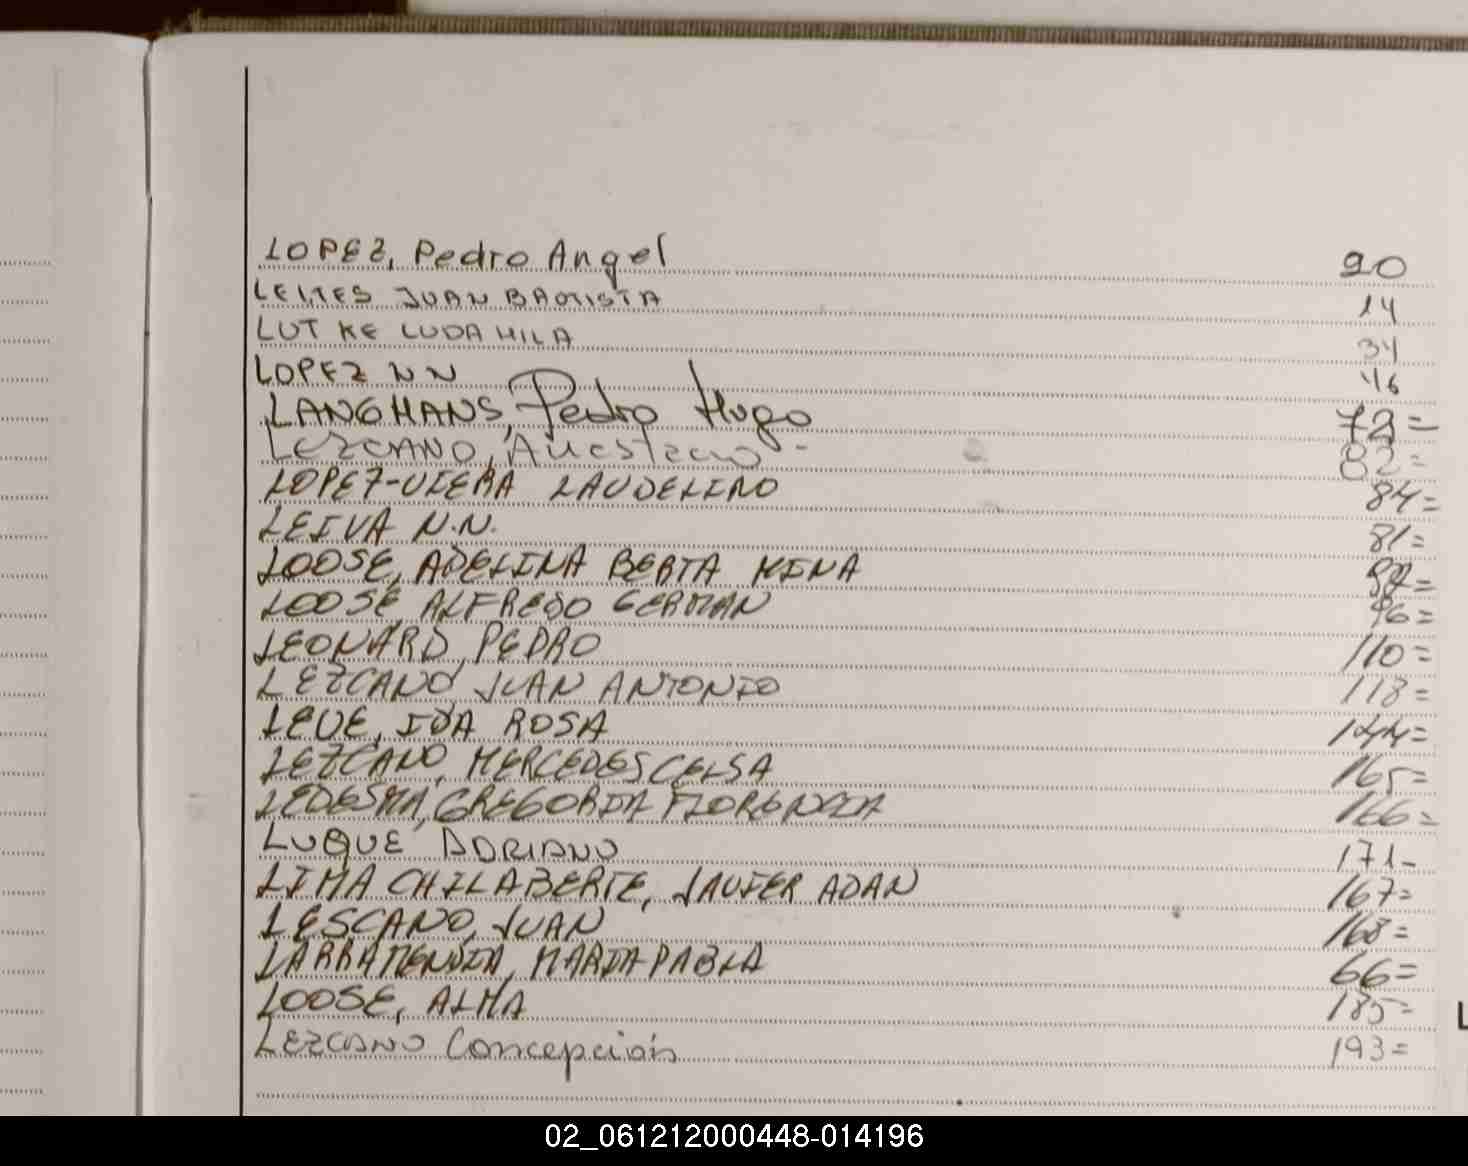 LOPEZ, Pedro Angel 20
LEITES JUAN BAUTISTA 14
LUTKE LUDAMILA 34
LOPEZ NN 46
LANGHANS, Pedro Hugo 73=
LEZCANO, 82=
LOPEZ-VIERA LAUDELINO 84=
LEIVA N.N. 81=
LOOSE, ADELINA BERTA MINA
LOOSE, ALFREDO GERMAN 96=
LEONARD, PEDRO 110=
LEZCANO, JUAN ANTONIO 118=
LEUE, IDA ROSA 144=
LEZCANO, MERCEDES CELSA 165=
LEDESMA, GREGORIA FLORENCIA 166=
LUQUE ADRIANO 171-
LIMA CHILABERTE, JAVIER ADAN 167=
LESCANO, JUAN 168=
LARRAMENDIA, MARIA PABLA 66=
LOOSE, ALMA 185=
LEZCANO Concepción 193=
L
02_061212000448-014196